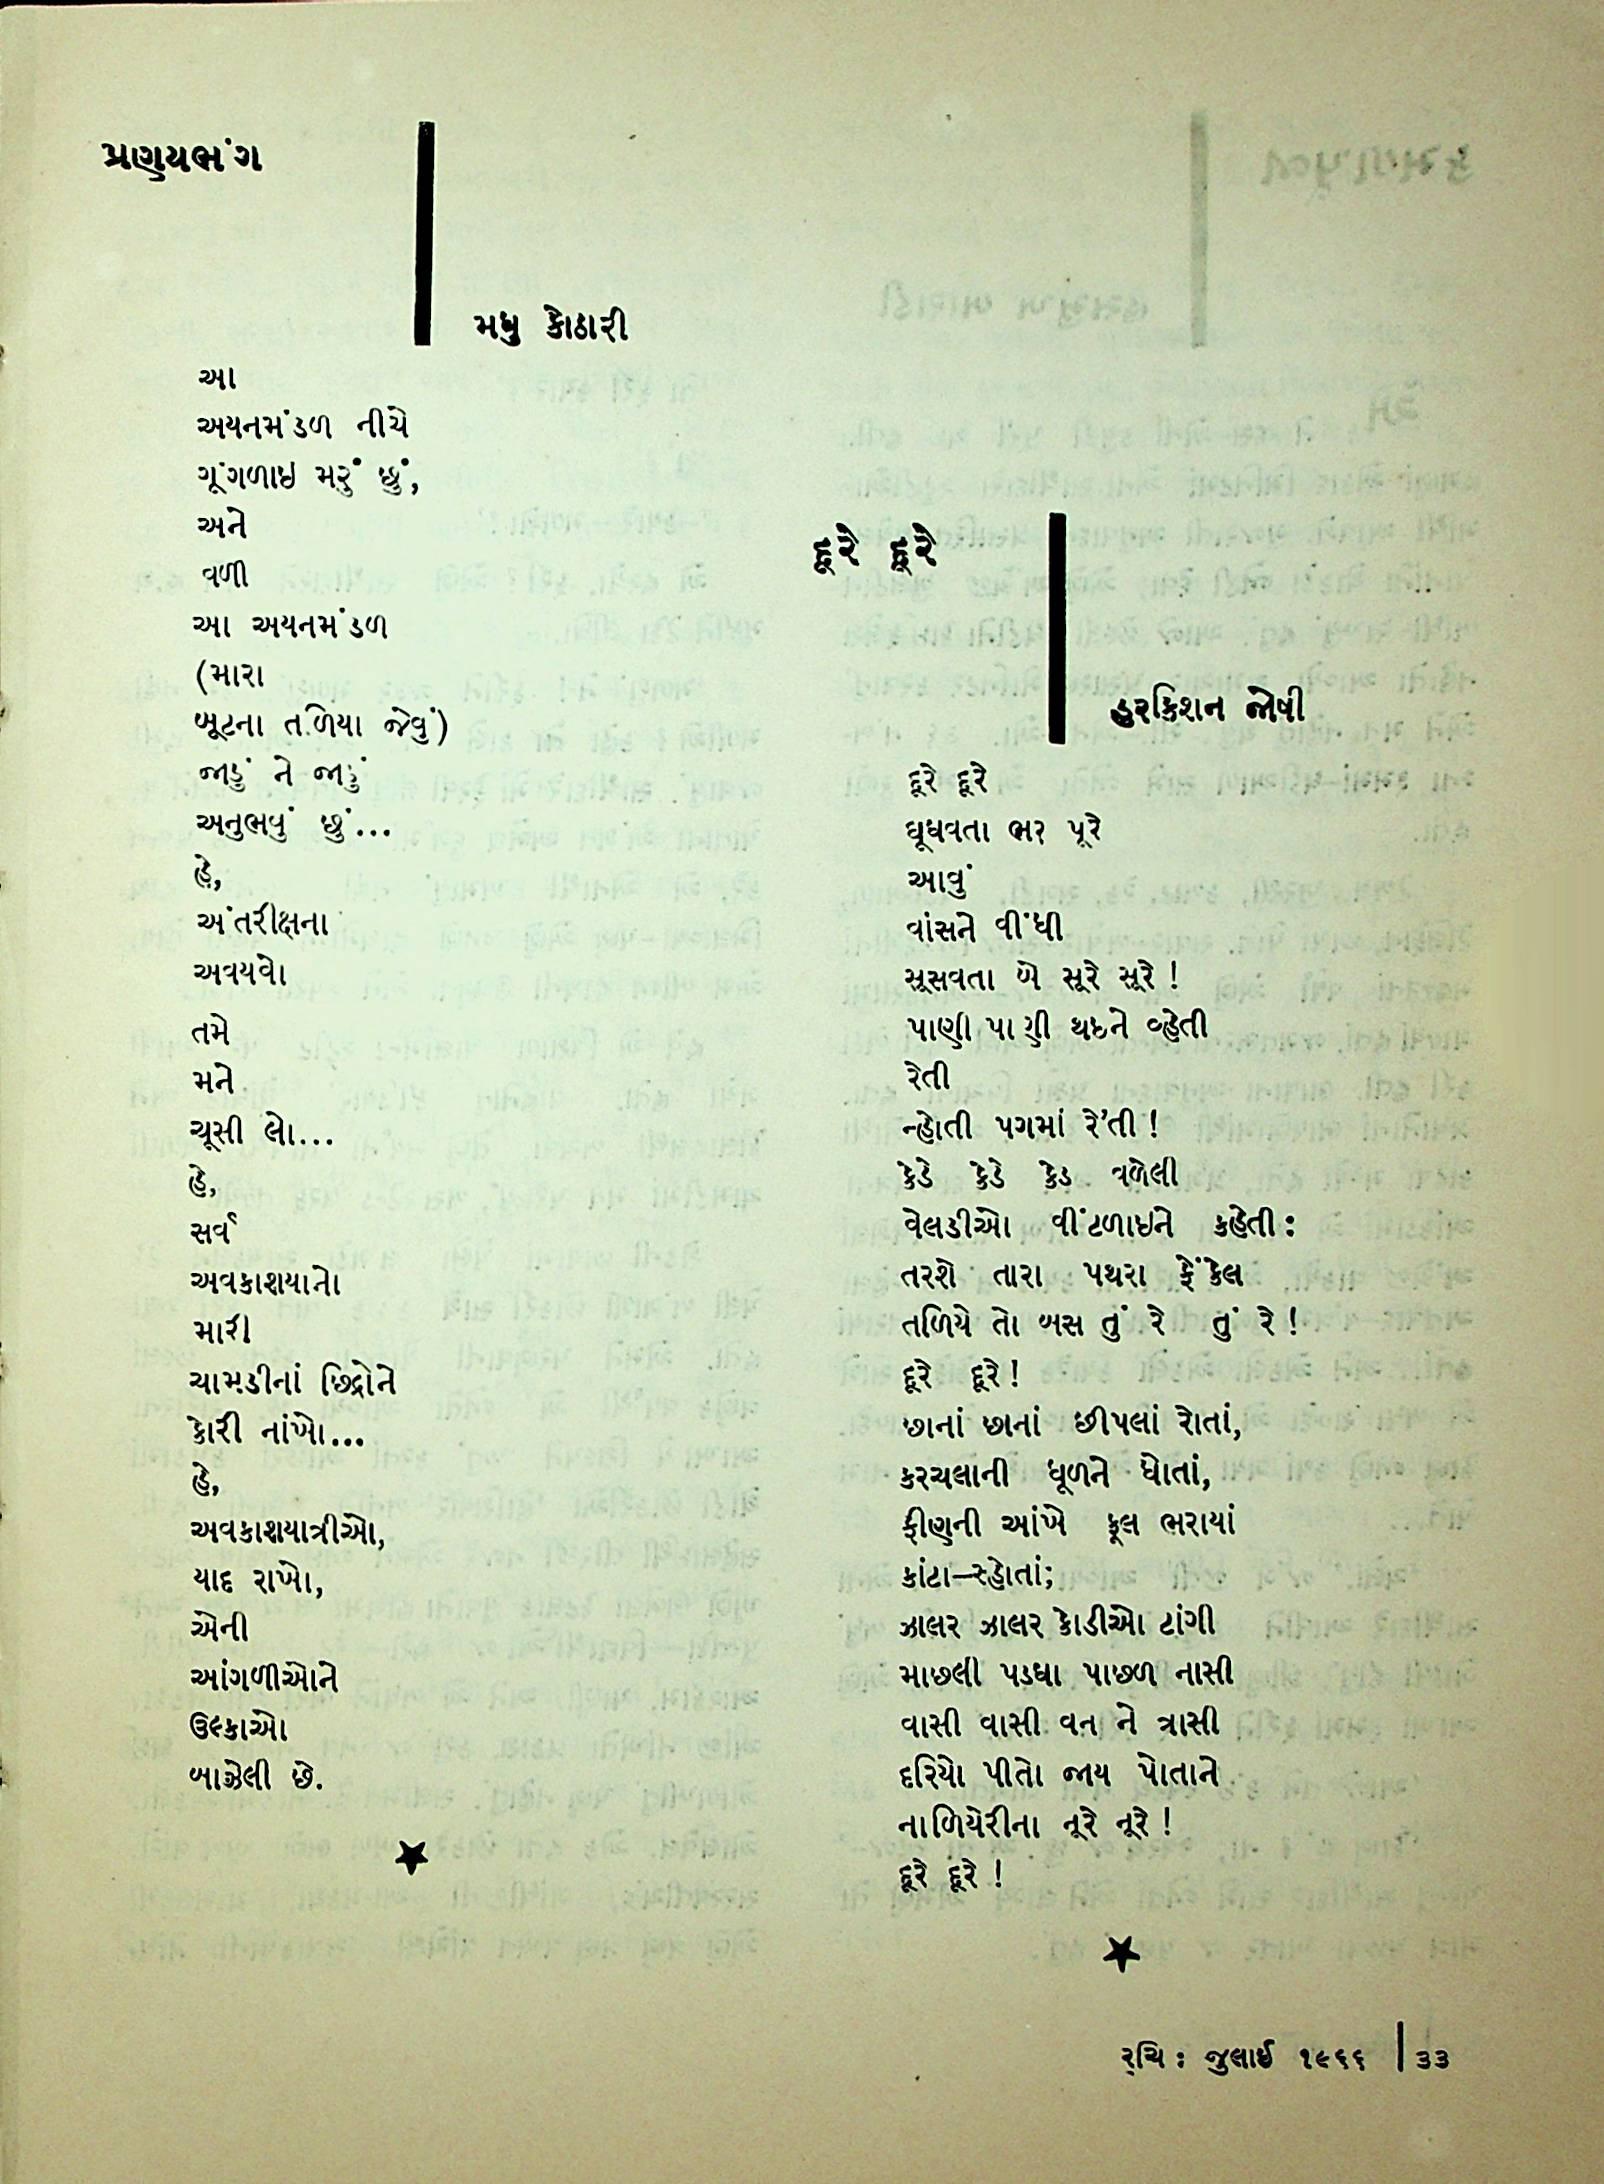 પ્રણયભંગ
મધુ કોઠારી
આ
અયનમંડળ નીચે
ગૂંગળાઇ મરું છું,
અને
વળી
આ અયનમંડળ
(મારા
બૂટના તળિયા જેવું)
જાડું ને જાડું
અનુભવું છું...
હે,
અંતરીક્ષના
અવયવો
તમે
મને
ચૂસી લો...
હે,
સર્વ
અવકાશયાનો
મારી
ચામડીનાં છિદ્રોને
કોરી નાંખો...
હે,
અવકાશયાત્રીઓ,
યાદ રાખો,
એની
આંગળીઓને
ઉલ્કાઓ
બાઝેલી છે.
દૂરે દૂરે
હરકિશન જોષી
દૂરે દૂરે
ઘૂઘવતા ભર પૂરે
આવું
વાંસને વીંધી
સૂસવતા બે સૂરે સૂરે !
પાણી પાણી થઇને વ્હેતી
રેતી
ન્હોતી પગમાં રે'તી !
કેડે કેડે કેડ વળેલી
વેલડીઓ વીંટળાઇને કહેતી :
તરશે તારા પથરા ફેંકેલ
તળિયે તો બસ તું રે તું રે !
દૂરે દૂરે !
છાનાં છાનાં છીપલાં રોતાં,
કરચલાની ધૂળને ધોતાં,
ફીણની આંખે ફૂલ ભરાયાં
કાંટા—સ્હોતાં;
ઝાલર ઝાલર કોડીઓ ટાંગી
માછલી પડઘા પાછળ નાસી
વાસી વાસી વન ને ત્રાસી
દરિયો પીતો જાય પોતાને
નાળિયેરીના નૂરે નૂરે !
દૂરે દૂરે !
રુચિ : જુલાઈ ૧૯૬૬ | ૩૩